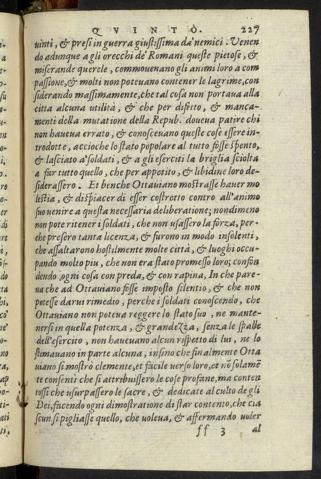 QVINTO. 227
uinti, & presi in guerra giustissima da' nemici. Venen
do adunque a gli orecchi de' Romani queste pietose, &
miserande querele, commoueuano gli animi loro a com
passione, & molti non poteuano contener le lagrime, con
siderando massimamente, che tal cosa non portaua alla
città alcuna utilità, & che per difetto, & manca-
menti della mutatione della Repub. doueua patire chi
non haueua errato, & conoscevano queste cose essere in-
trodotte, accioche lo stato popolare al tutto fosse spento,
& lasciato a' soldati, & a gli eserciti la briglia sciolta
a far tutto quello, che per appetito, & libidine loro de-
siderassero. Et benche Ottauiano mostrasse hauer mo
lestia, & dispiacer di esser costretto contro all'animo
suo uenire a questa necessaria deliberatione; nondimeno
non pote ritener i soldati, che non usassero la forza, per-
che presero tanta licenza, & furono in modo insolenti,
che assaltarono hostilmente molte città, & luoghi occu-
pando molto piu, che non era stato promesso loro; confon
dendo ogni cosa con preda, & con rapina, In che pare-
ua che ad Ottauiano fosse imposto silentio, & che non
potesse darui rimedio, perche i soldati conoscendo, che
Ottauiano non poteua reggere lo stato suo, ne mante-
nersi in quella potenza, & grandezza, senza le spalle
dell'esercito, non haueuano alcun rispetto di lui, ne lo
stimauano in parte alcuna, insino che finalmente Otta
uiano si mostrò clemente, et facile uerso loro, et nō solamē
te consenti che si attribuissero le cose profane, ma conten
tossi che usurpassero le sacre, & dedicate al culto de gli
Dei, facendo ogni dimostratione di star contento, che cia
scun si pigliasse quello, che uoleua, & affermando uoler
ff 3 al